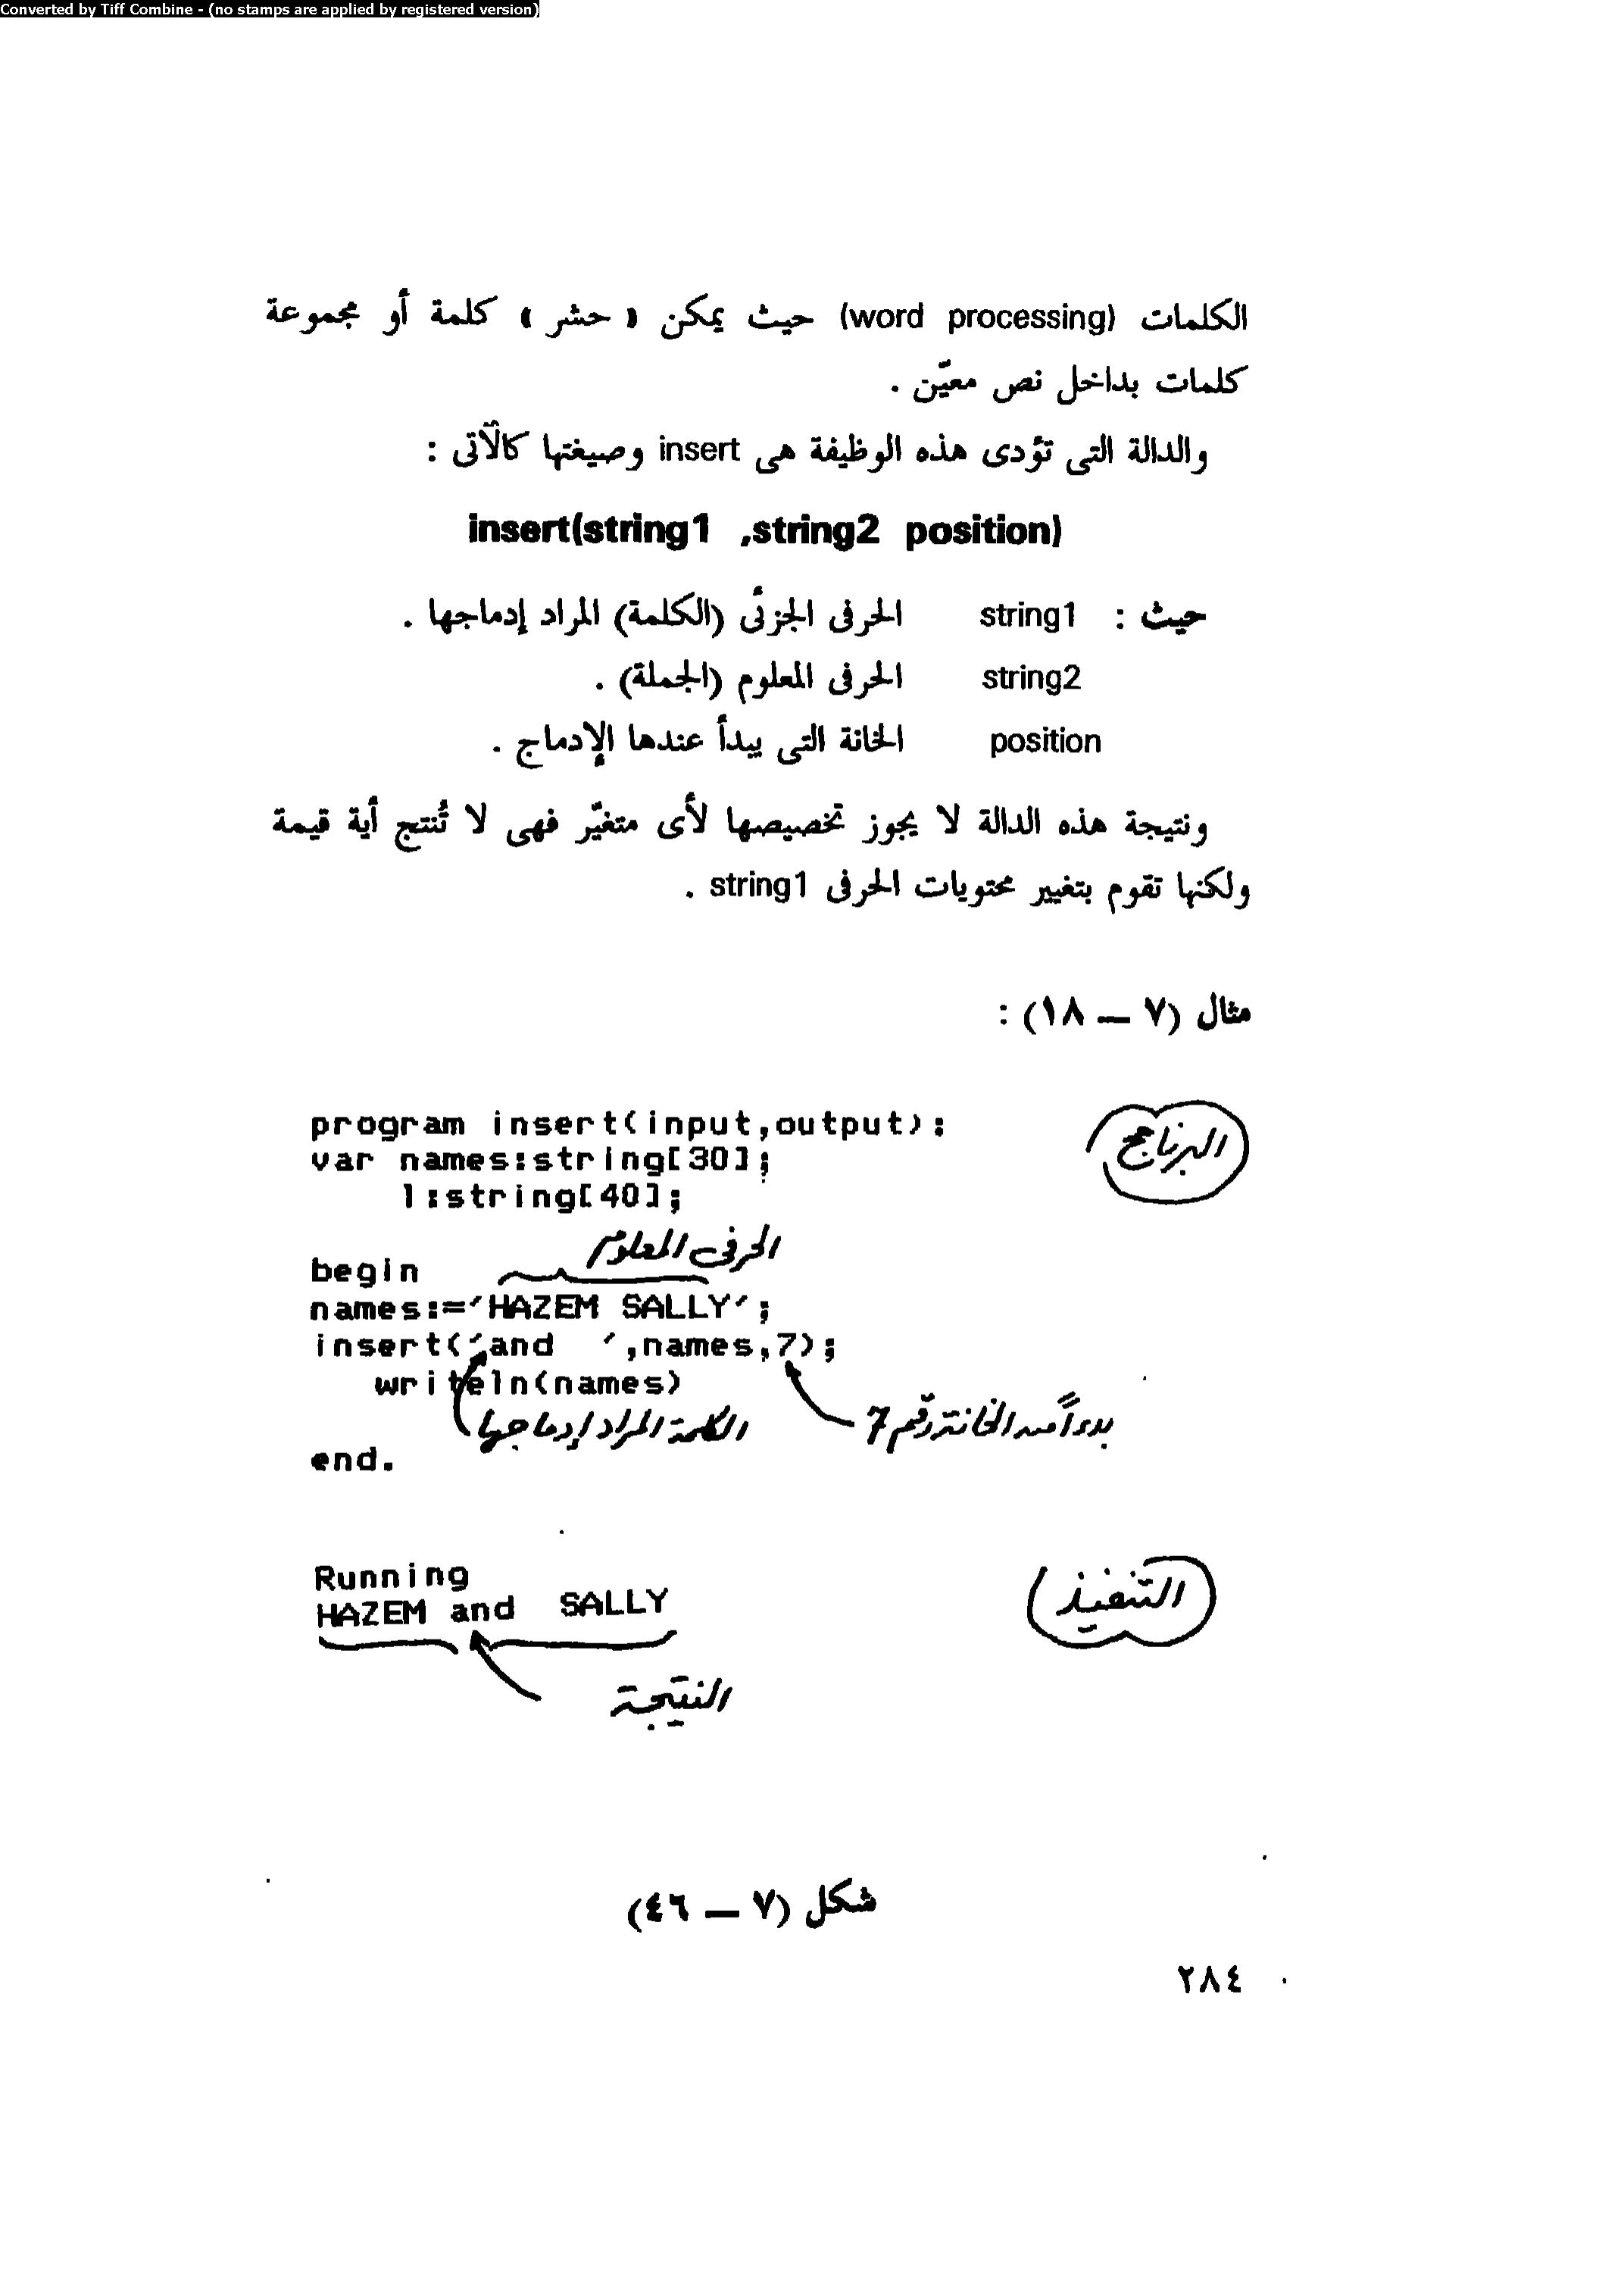 Converted by Tiff Combine - (no stamps are applied by registered version)
الكلمات (word processing) حيث يمكن « حشر » كلمة أو مجموعة
كلمات بداخل نص معيّن .
والدالة التى تؤدى هذه الوظيفة هى insert وصيغتها كالآتى :
insert(string1 ,string2 position)
حيث : string1 الحرفى الجزئى (الكلمة) المراد إدماجها .
string2 الحرفى المعلوم (الجملة) .
position الخانة التى يبدأ عندها الإدماج .
ونتيجة هذه الدالة لا يجوز تخصيصها لأى متغيّر فهى لا تُنتج أية قيمة
ولكنها تقوم بتغيير محتويات الحرفى string1 .
مثال (٧ — ١٨) :
البرنامج
program insert(input,output);
var names:string[30];
l:string[40];
الحرفى المعلوم
begin
names:='HAZEM SALLY';
insert('and  ',names,7);
writeln(names)
الكلمة المراد إدماجها
بدءاً من الخانة رقم 7
end.
التنفيذ
Running
HAZEM and  SALLY
النتيجة
شكل (٧ — ٤٦)
٢٨٤